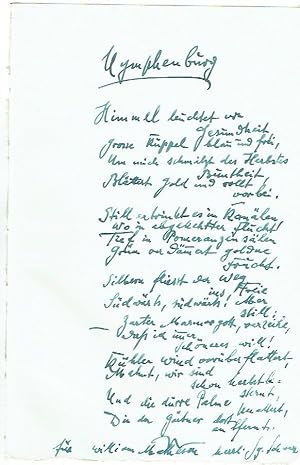 Nymphenburg
Himmel leuchtet von
Gesundheit,
Grosse Kuppel blau und frei,
Um mich schmilzt des Herbstes
Buntheit,
Blättert Gold und rollt
vorbei.
Still ertrinkt es in Kanälen
wo in abgezirkter Flucht
Tief in Pomeranzensälen
Grün verdämert goldne
Frucht.
Silbern fliesst der Weg
ins Freie
Südwärts, südwärts! Aber
still:
Zarter Marmorgott, verzeihe,
daß ich immer
Schöneres will!
Kühler Wind vorüberflattert,
Mahnt, wir sind
schon herbstbe-
sternt,
Und die dürre Palme
knattert,
Die der Gärtner dort
entfernt.
für William Matheson